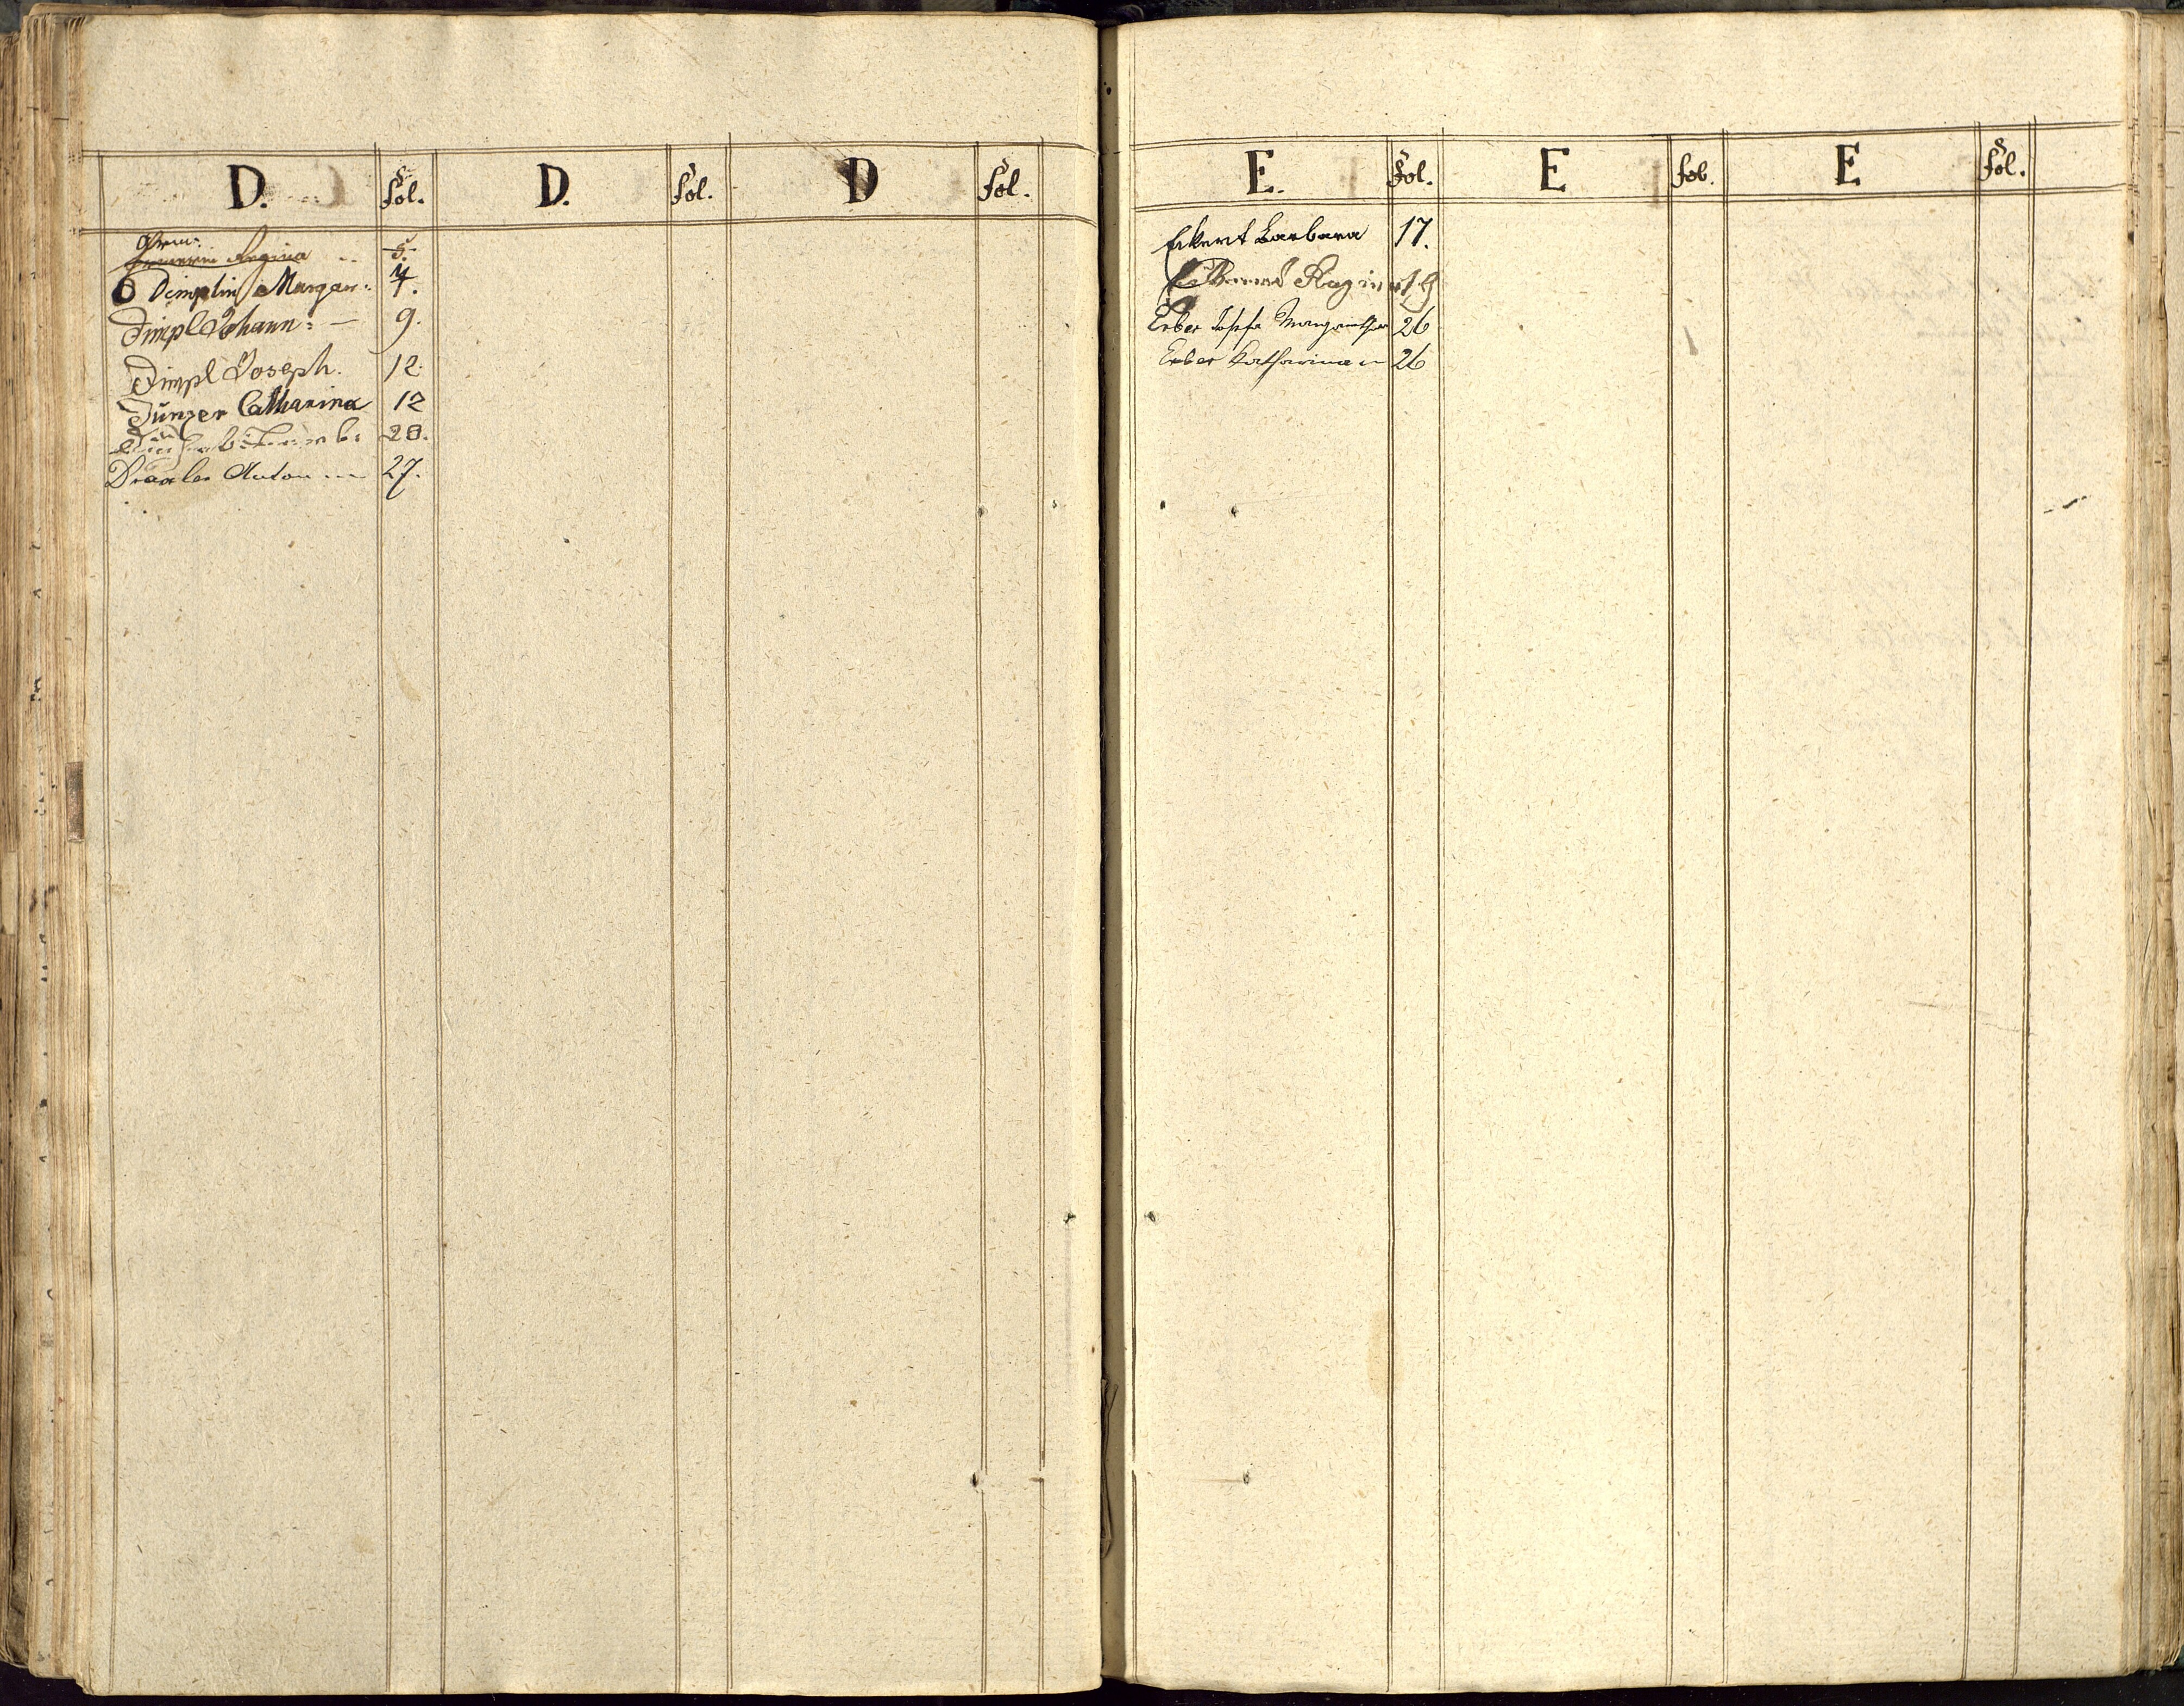 D. Fol. D. Fol. D Fol.
Regina 5.
Dimplin Margar: 7.
Dimpl Johann: — 9.
Dimpl Joseph. 12.
Dunzer Catharina 12
20.
Draxler Anton 27.
E. Fol. E Fol. E Fol.
Eckert Barbara 17.
19
Erber Josefa Margaretha 26
Erber Katharina 26